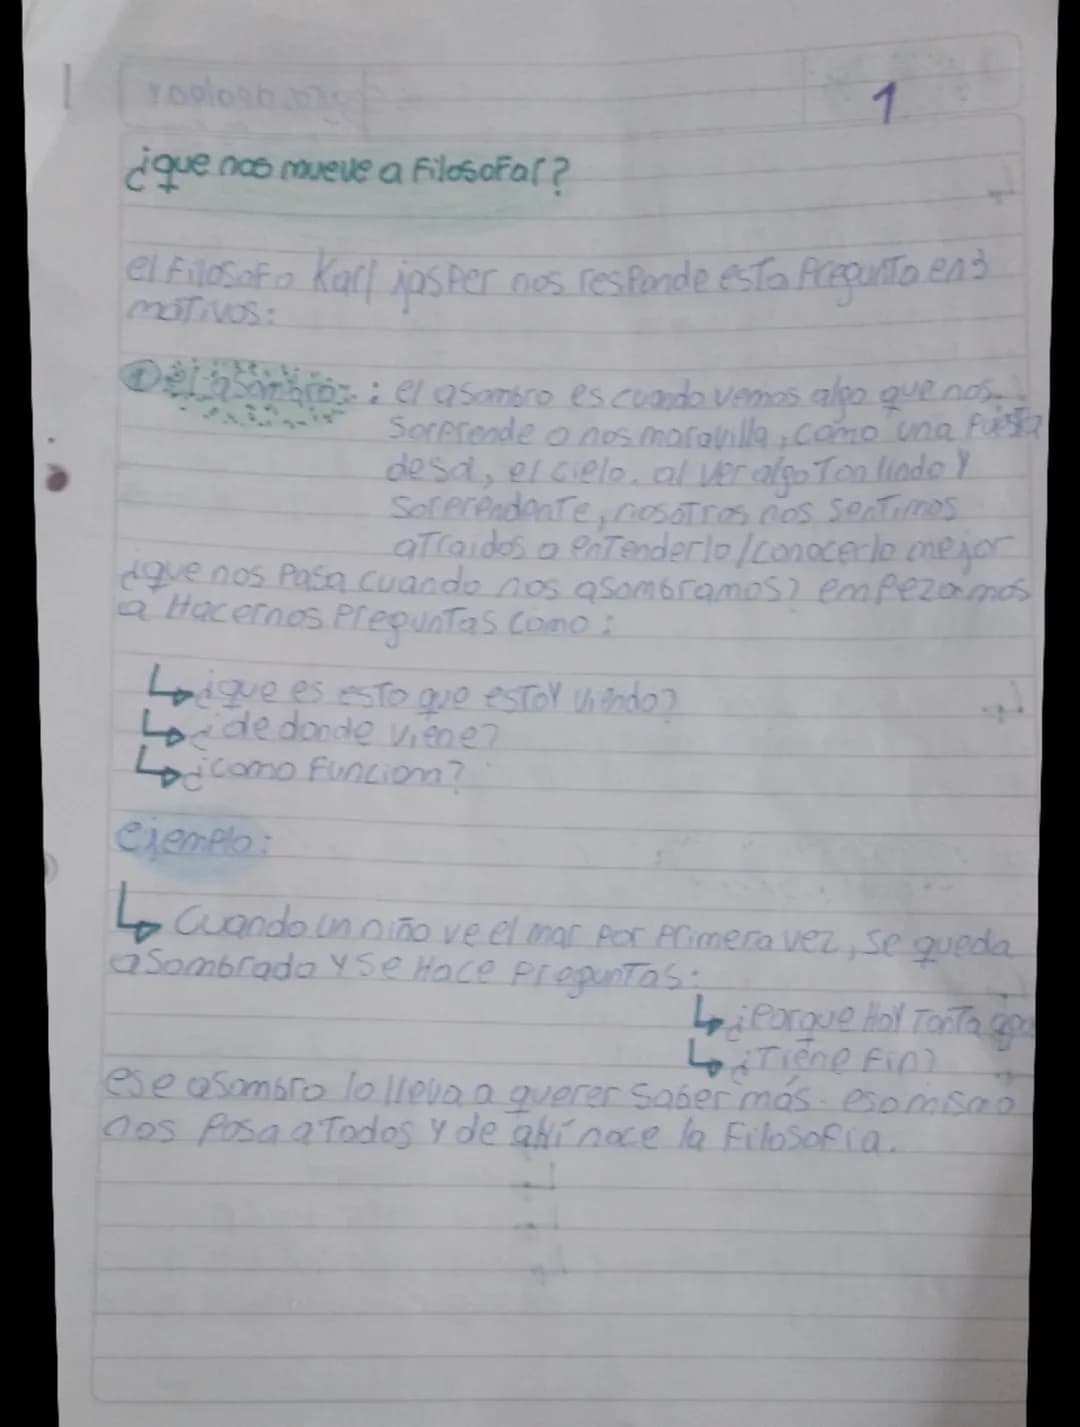 1
¿que nos mueve a Filosofar?
el Filosofo Karl jasper nos responde esta Pregunta en 3
motivos:
① el asombro: el asombro es cuando vemos algo que nos
Sorprende o nos maravilla, como una Puesta
de sol, el cielo. al ver algo Tan lindo y
sorprendente, nosotros nos sentimos
atraidos a entenderlo/conocerlo mejor
¿que nos Pasa cuando nos asombramos? empezamos
a Hacernos Preguntas como:
¿que es esto que estoy viendo?
¿de donde viene?
¿como Funciona?
ejemplo:
Cuando un niño ve el mar por primera vez, se queda
asombrado y se Hace Preguntas:
¿Porque Hay Tanta agua
¿Tiene Fin?
ese asombro lo lleva a querer saber más. eso mismo
nos Pasa a Todos y de ahí nace la Filosofía.